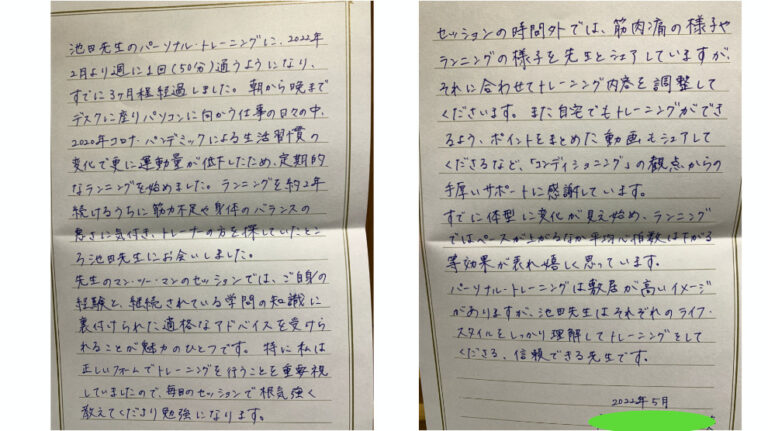 池田先生のパーソナル・トレーニングに、2022年
2月より週に1回(50分)通うようになり、
すでに3ヶ月程経過しました。朝から晩まで
デスクに座りパソコンに向かう仕事の日々の中、
2020年コロナ・パンデミックによる生活習慣の
変化で更に運動量が低下したため、定期的
なランニングを始めました。ランニングを約2年
続けるうちに筋力不足や身体のバランスの
悪さに気付き、トレーナーの方を探していたとこ
ろ池田先生にお会いしました。
先生のマン・ツー・マンのセッションでは、ご自身の
経験と、継続されている学問の知識に
裏付けられた適格なアドバイスを受けら
れることが魅力のひとつです。特に私は
正しいフォームでトレーニングを行うことを重要視
していましたので、毎回のセッションで根気強く
教えてくださり勉強になります。
セッションの時間外では、筋肉痛の様子や
ランニングの様子を先生とシェアしていますが、
それに合わせてトレーニング内容を調整して
くださいます。また自宅でもトレーニングができ
るよう、ポイントをまとめた動画もシェアして
くださるなど、「コンディショニング」の観点からの
手厚いサポートに感謝しています。
すでに体型に変化が見え始め、ランニング
ではペースが上がるなか平均心拍数は下がる
等効果が表れ嬉しく思っています。
パーソナル・トレーニングは敷居が高いイメージ
がありますが、池田先生はそれぞれのライフ・
スタイルをしっかり理解してトレーニングをして
くださる、信頼できる先生です。
2022年5月